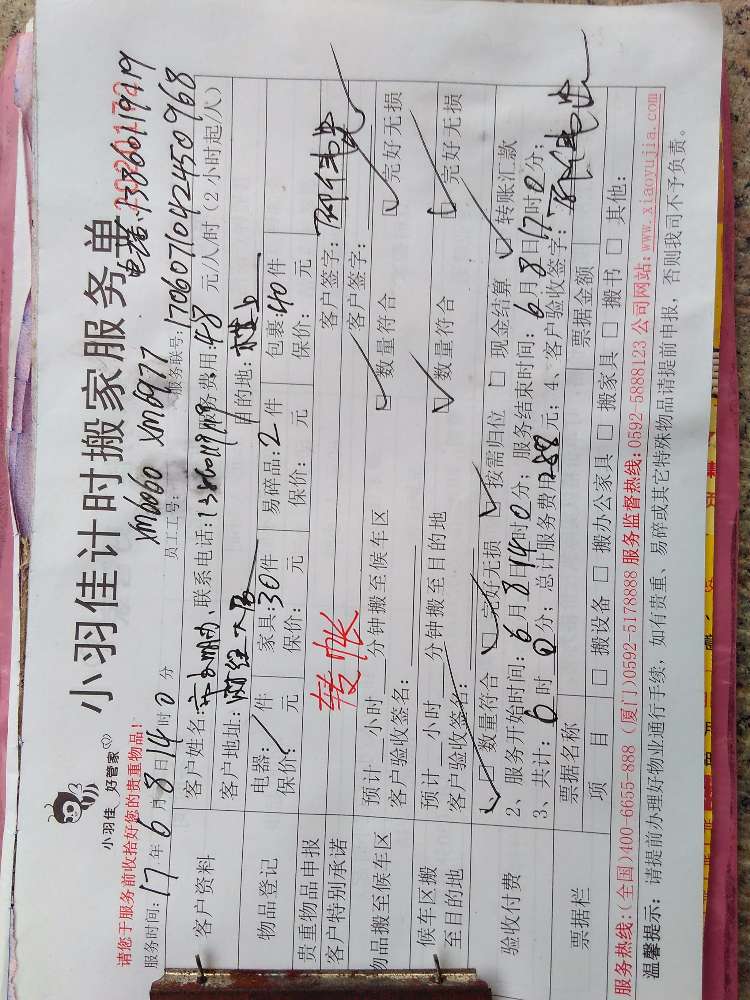 小羽佳 好管家
小羽佳计时搬家服务单
请您于服务前收拾好您的贵重物品！
电话:13860119719
xm6060 xm6977
服务时间:17年6月8日14时0分 员工工号: 服务联号:17060710424250968
客户资料 客户姓名: 联系电话: 服务费用:48元/人/时(2小时起/人)
客户地址: 大厦 目的地:楼上
物品登记 电器:/件 家具:30件 易碎品:2件 包裹:40件
保价:/元 保价: 元 保价: 元 保价: 元
贵重物品申报
客户特别承诺 转帐 客户签字:
物品搬至候车区 预计 小时 分钟搬至候车区 客户签字:
客户验收签名: 数量符合 完好无损
候车区搬至目的地 预计 小时 分钟搬至目的地
客户验收签名: 数量符合 完好无损
验收付费 数量符合 完好无损 按需归位 现金结算 转账汇款
2、服务开始时间:6月8日14时0分; 服务结束时间:6月8日17时0分;
3、共计:6时0分; 总计服务费用288元; 4、客户验收签字:
票据栏 票据名称 票据金额
项 目 搬设备 搬办公家具 搬家具 搬书 其他:
服务热线:(全国)400-6655-888 (厦门)0592-5178888 服务监督热线:0592-5888123 公司网站:www.xiaoyujia.com
温馨提示: 请提前办理好物业通行手续，如有贵重、易碎或其它特殊物品请提前申报，否则我司不予负责。